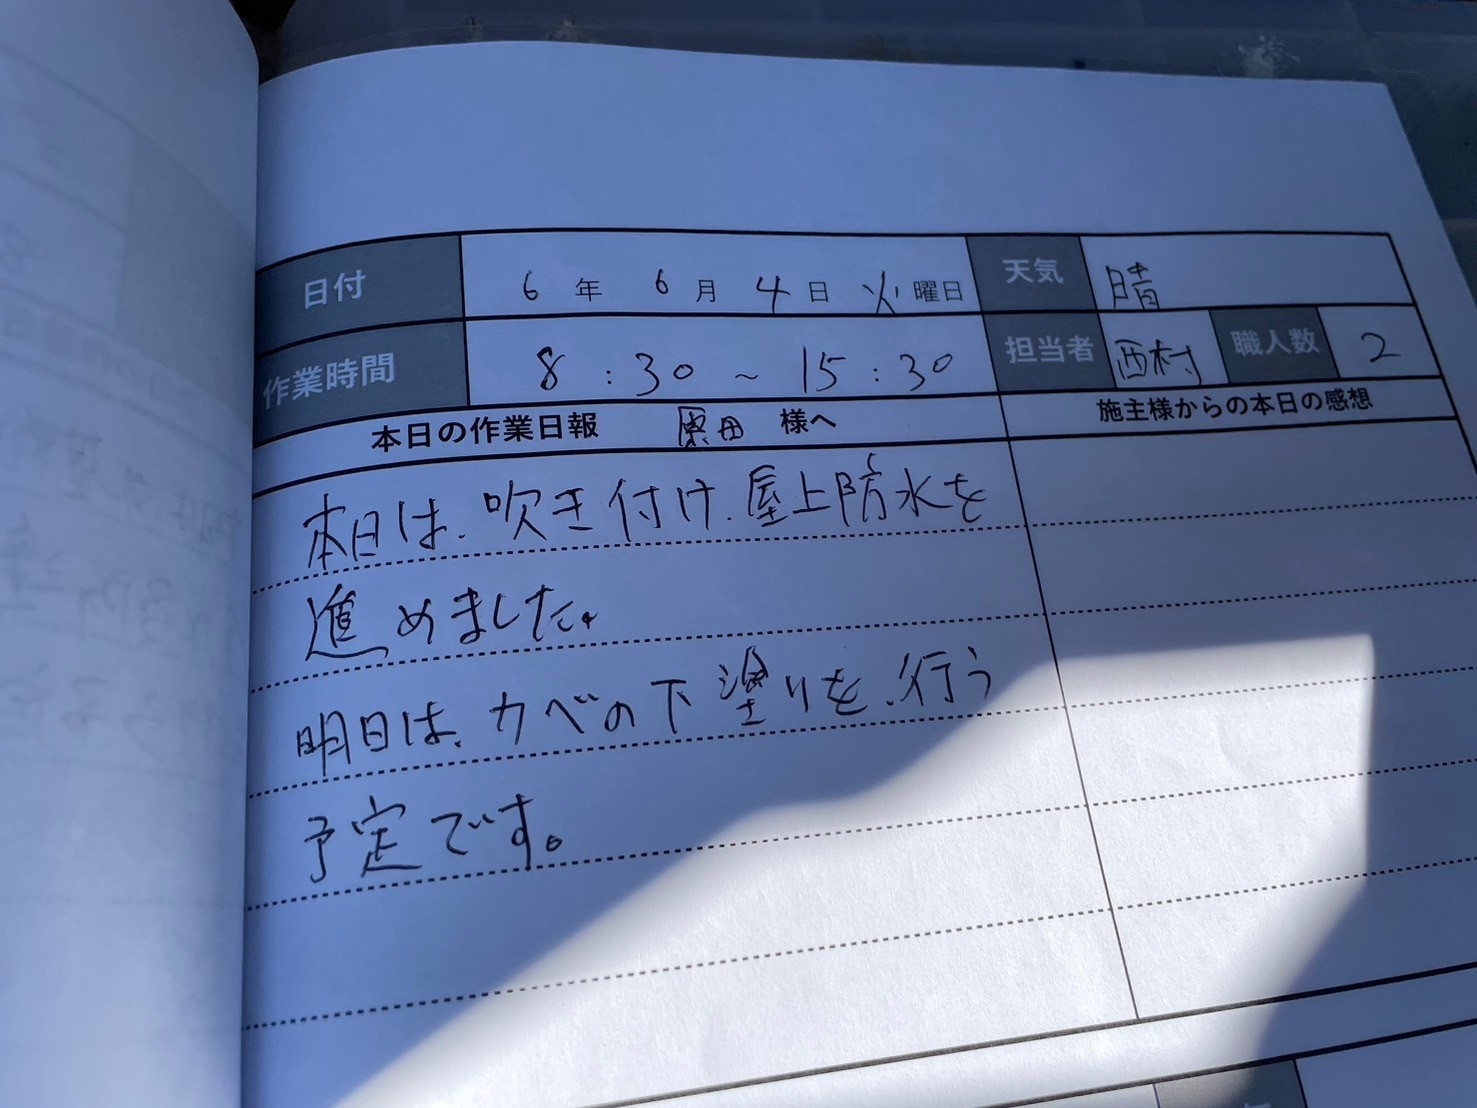 日付 6年 6月 4日 火曜日 天気 晴
作業時間 8:30 ~ 15:30 担当者 西村 職人数 2
本日の作業日報 田 様へ 施主様からの本日の感想
本日は、吹き付け、屋上防水を
進めました。
明日は、カベの下塗りを、行う
予定です。